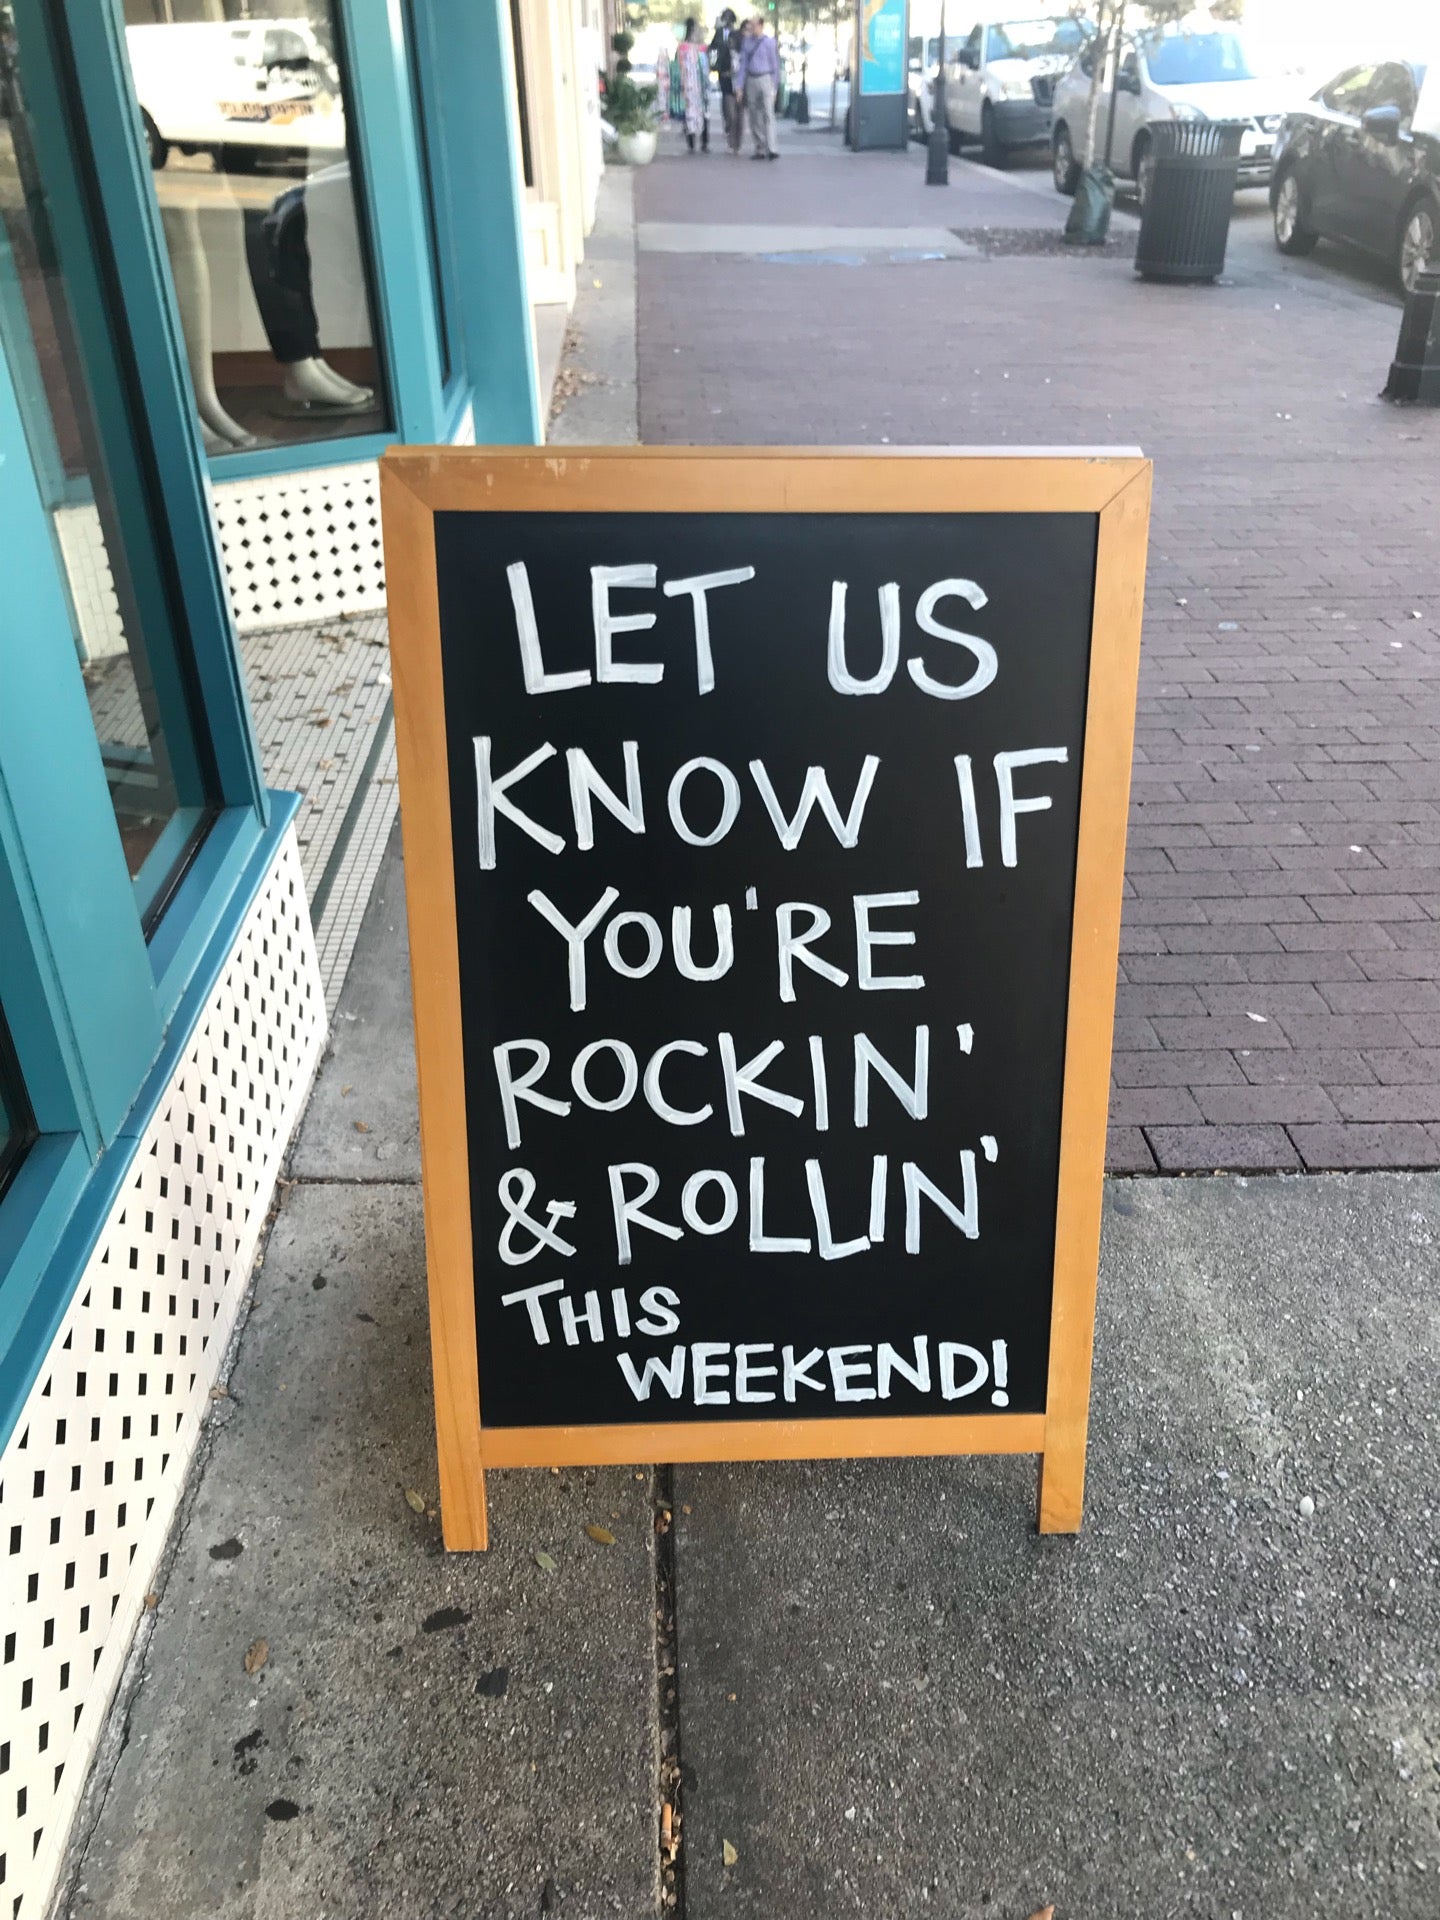 LET US
KNOW IF
YOU'RE
ROCKIN'
& ROLLIN'
THIS
WEEKEND!